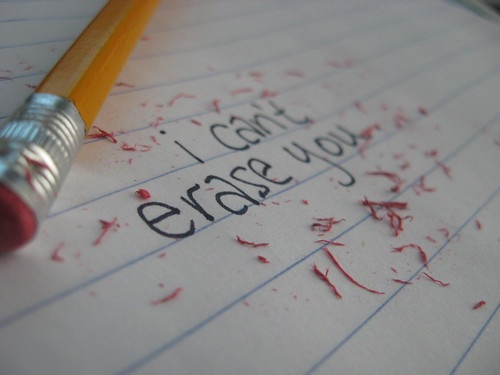 i can't
erase you